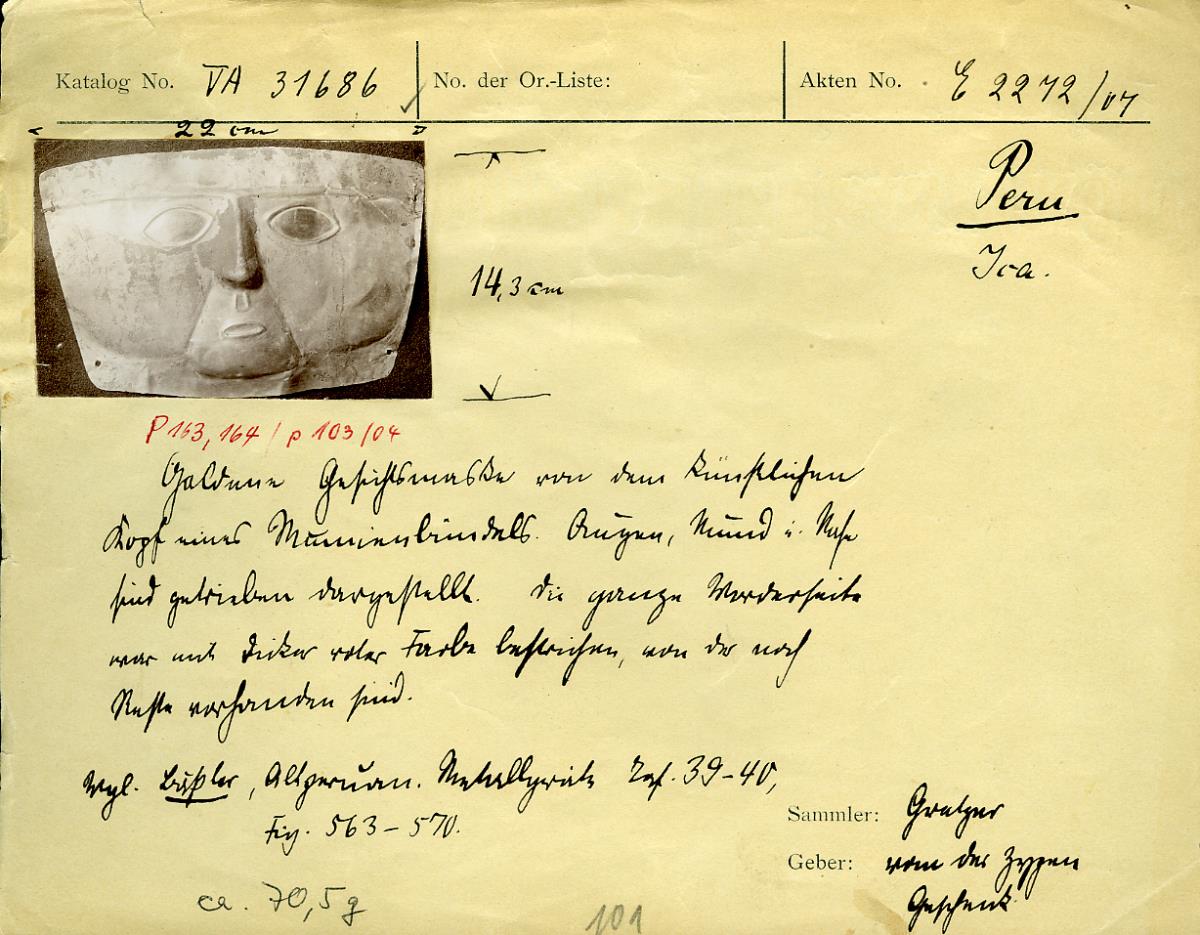 Katalog No. VA 31686
No. der Or.-Liste:
Akten No. E 2272/07
22 cm
Peru
Ica.
14,3 cm
P 163, 164 / p 103/04
Goldene Gesichtsmaske von dem künstlichen
Kopf eines Mumienbündels. Augen, Mund u. Nase
sind getrieben dargestellt. Die ganze Vorderseite
war mit dicker roter Farbe bestrichen, von der noch
Reste vorhanden sind.
Vgl. Bäßler, Altperuan. Metallgeräte Taf. 39-40,
Fig. 563-570.
Sammler: Gretzer
Geber: vom der Zypen
Geschenk
ca. 70,5 g
101